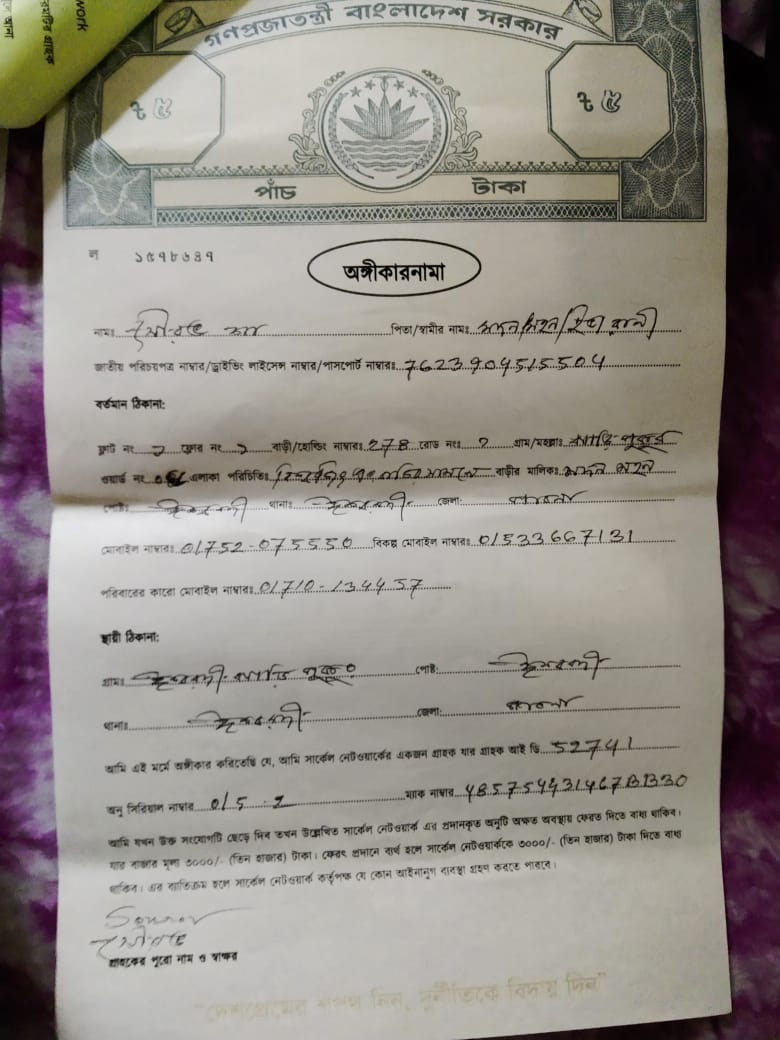 work
গণপ্রজাতন্ত্রী বাংলাদেশ সরকার
৳ ৫ ৳ ৫
পাঁচ টাকা
ল ১৫৭৮৬৪৭
অঙ্গীকারনামা
নামঃ সৌরভ পিতা/স্বামীর নামঃ
জাতীয় পরিচয়পত্র নাম্বার/ড্রাইভিং লাইসেন্স নাম্বার/পাসপোর্ট নাম্বারঃ 7623904515504
বর্তমান ঠিকানা:
ফ্লাট নং ফ্লোর নং বাড়ী/হোল্ডিং নাম্বারঃ 278 রোড নংঃ গ্রাম/মহল্লাঃ
ওয়ার্ড নং এলাকা পরিচিতিঃ বাড়ীর মালিকঃ
পোষ্টঃ ঈশ্বরদী থানাঃ ঈশ্বরদী জেলা: পাবনা
মোবাইল নাম্বারঃ 01752-075550 বিকল্প মোবাইল নাম্বারঃ 01533667131
পরিবারের কারো মোবাইল নাম্বারঃ 01710-134457
স্থায়ী ঠিকানা:
গ্রামঃ ঈশ্বরদী পোষ্ট: ঈশ্বরদী
থানাঃ ঈশ্বরদী জেলা: পাবনা
আমি এই মর্মে অঙ্গীকার করিতেছি যে, আমি সার্কেল নেটওয়ার্কের একজন গ্রাহক যার গ্রাহক আই ডি 52741
অনু সিরিয়াল নাম্বার ম্যাক নাম্বার
আমি যখন উক্ত সংযোগটি ছেড়ে দিব তখন উল্লেখিত সার্কেল নেটওয়ার্ক এর প্রদানকৃত অনুটি অক্ষত অবস্থায় ফেরত দিতে বাধ্য থাকিব।
যার বাজার মূল্য ৩০০০/- (তিন হাজার) টাকা। ফেরৎ প্রদানে ব্যর্থ হলে সার্কেল নেটওয়ার্ককে ৩০০০/- (তিন হাজার) টাকা দিতে বাধ্য
থাকিব। এর ব্যতিক্রম হলে সার্কেল নেটওয়ার্ক কর্তৃপক্ষ যে কোন আইনানুগ ব্যবস্থা গ্রহণ করতে পারবে।
Sourav
সৌরভ
গ্রাহকের পুরো নাম ও স্বাক্ষর
"দেশপ্রেমের শপথ নিন, দুর্নীতিকে বিদায় দিন"